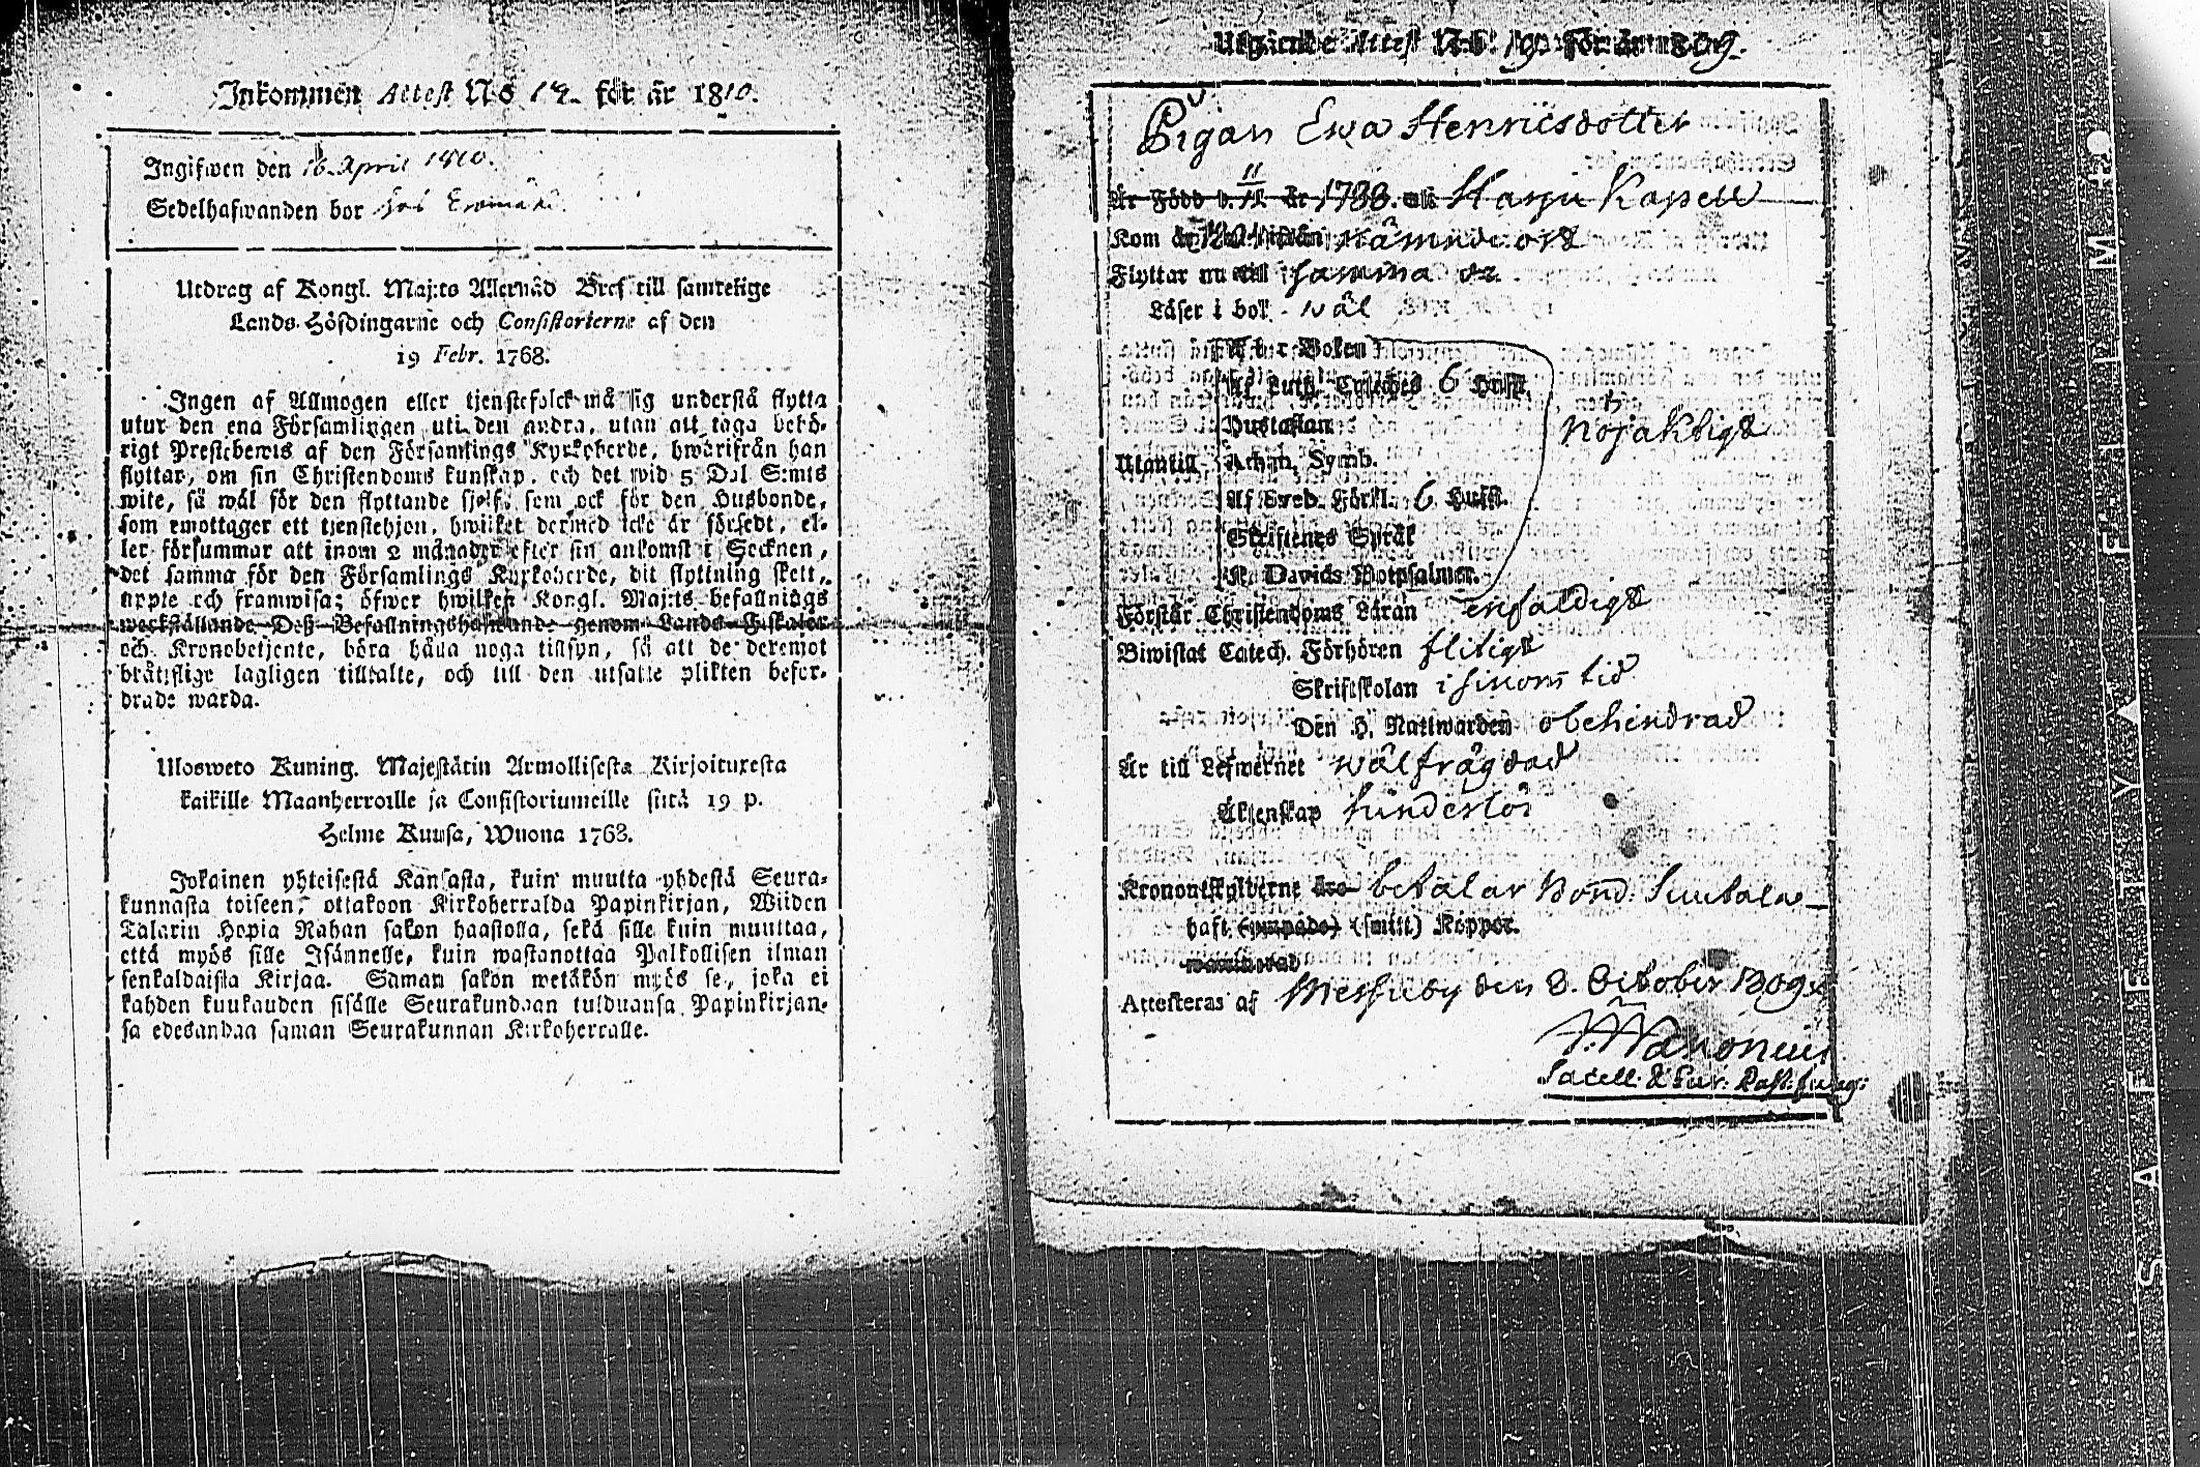 Inkommen Attest No 14. för år 1810.
Ingifwen den 16 April 1810.
Sedelhafwanden bor hos
Utdrag af Kongl. Maj:ts Allernåd Bref till samtelige
Lands-Höfdingarne och Consistorierne af den
19 Febr. 1768.
Ingen af Allmogen eller tjenstefolck må sig understå flytta
utur den ena Församlingen uti den andra, utan att taga behö-
rigt Prestebewis af den Församlings Kyrkoherde, hwarifrån han
flyttar, om sin Christendoms kunskap, och det wid 5 Dal. S:mts
wite, så wäl för den flyttande sjelf, som ock för den Husbonde,
som emottager ett tjenstehjon, hwilket dermed icke är försedt, el-
ler försummar att inom 2 månader efter sin ankomst i Socknen,
det samma för den Församlings Kyrkoherde, dit flyttning skett,
uppte och framwisa; öfwer hwilken Kongl. Maj:ts befallnings
werkställande Deß Befallningshafwande genom Lands-Fiskaler
och Kronobetjente, böra hålla noga tillsyn, så att de deremot
bråttslige lagligen tilltalte, och till den utsatte plikten befor-
drade warda.
Ulosweto Kuning. Majestätin Armollisesta Kirjoituxesta
kaikille Maanherroille ja Consistoriumeille siitä 19 p.
Helme Kuusa, Wuona 1768.
Jokainen yhteisestä Kansasta, kuin muutta yhdestä Seura-
kunnasta toiseen, ottakoon Kirkoherralda Papinkirjan, Wiiden
Talarin Hopia Rahan sakon haastolla, sekä sille kuin muuttaa,
että myös sille Isännelle, kuin wastanottaa Palkollisen ilman
senkaldaista Kirjaa. Saman sakon wetäkön myös se, joka ei
kahden kuukauden sisälle Seurakundaan tulduansa Papinkirjan-
sa edesandaa saman Seurakunnan Kirkoherralle.
Utgående Attest N:o 190 för år 1809.
Pigan Ewa Henricsdotter
Är Född d. 11 år 1788. uti Harju Kapell
Kom år ifrån nämnde ort
Flyttar nu till samma or.
Läser i bok wäl
A b c Boken
Af Luth. Cateches 6 Hufst.
Hustaflan
nöjaktigt
Utantill Athan. Symb.
Af Sveb. Förkl. 6 Hufst.
Skriftenes Språk
K. Davids Botpsalmer.
Förstår Christendoms Läran enfaldigt
Biwistat Catech. Förhören flitigt
Skriftskolan i sinom tid
Den H. Nattwarden obehindrad
Är till Lefwernet wälfrägdad
Äktenskap hinderlös
Kronoutskylderne betalar Bond.
haft (ympade) (smitt) Koppor.
Attesteras af Messuby den 8. October 1809.